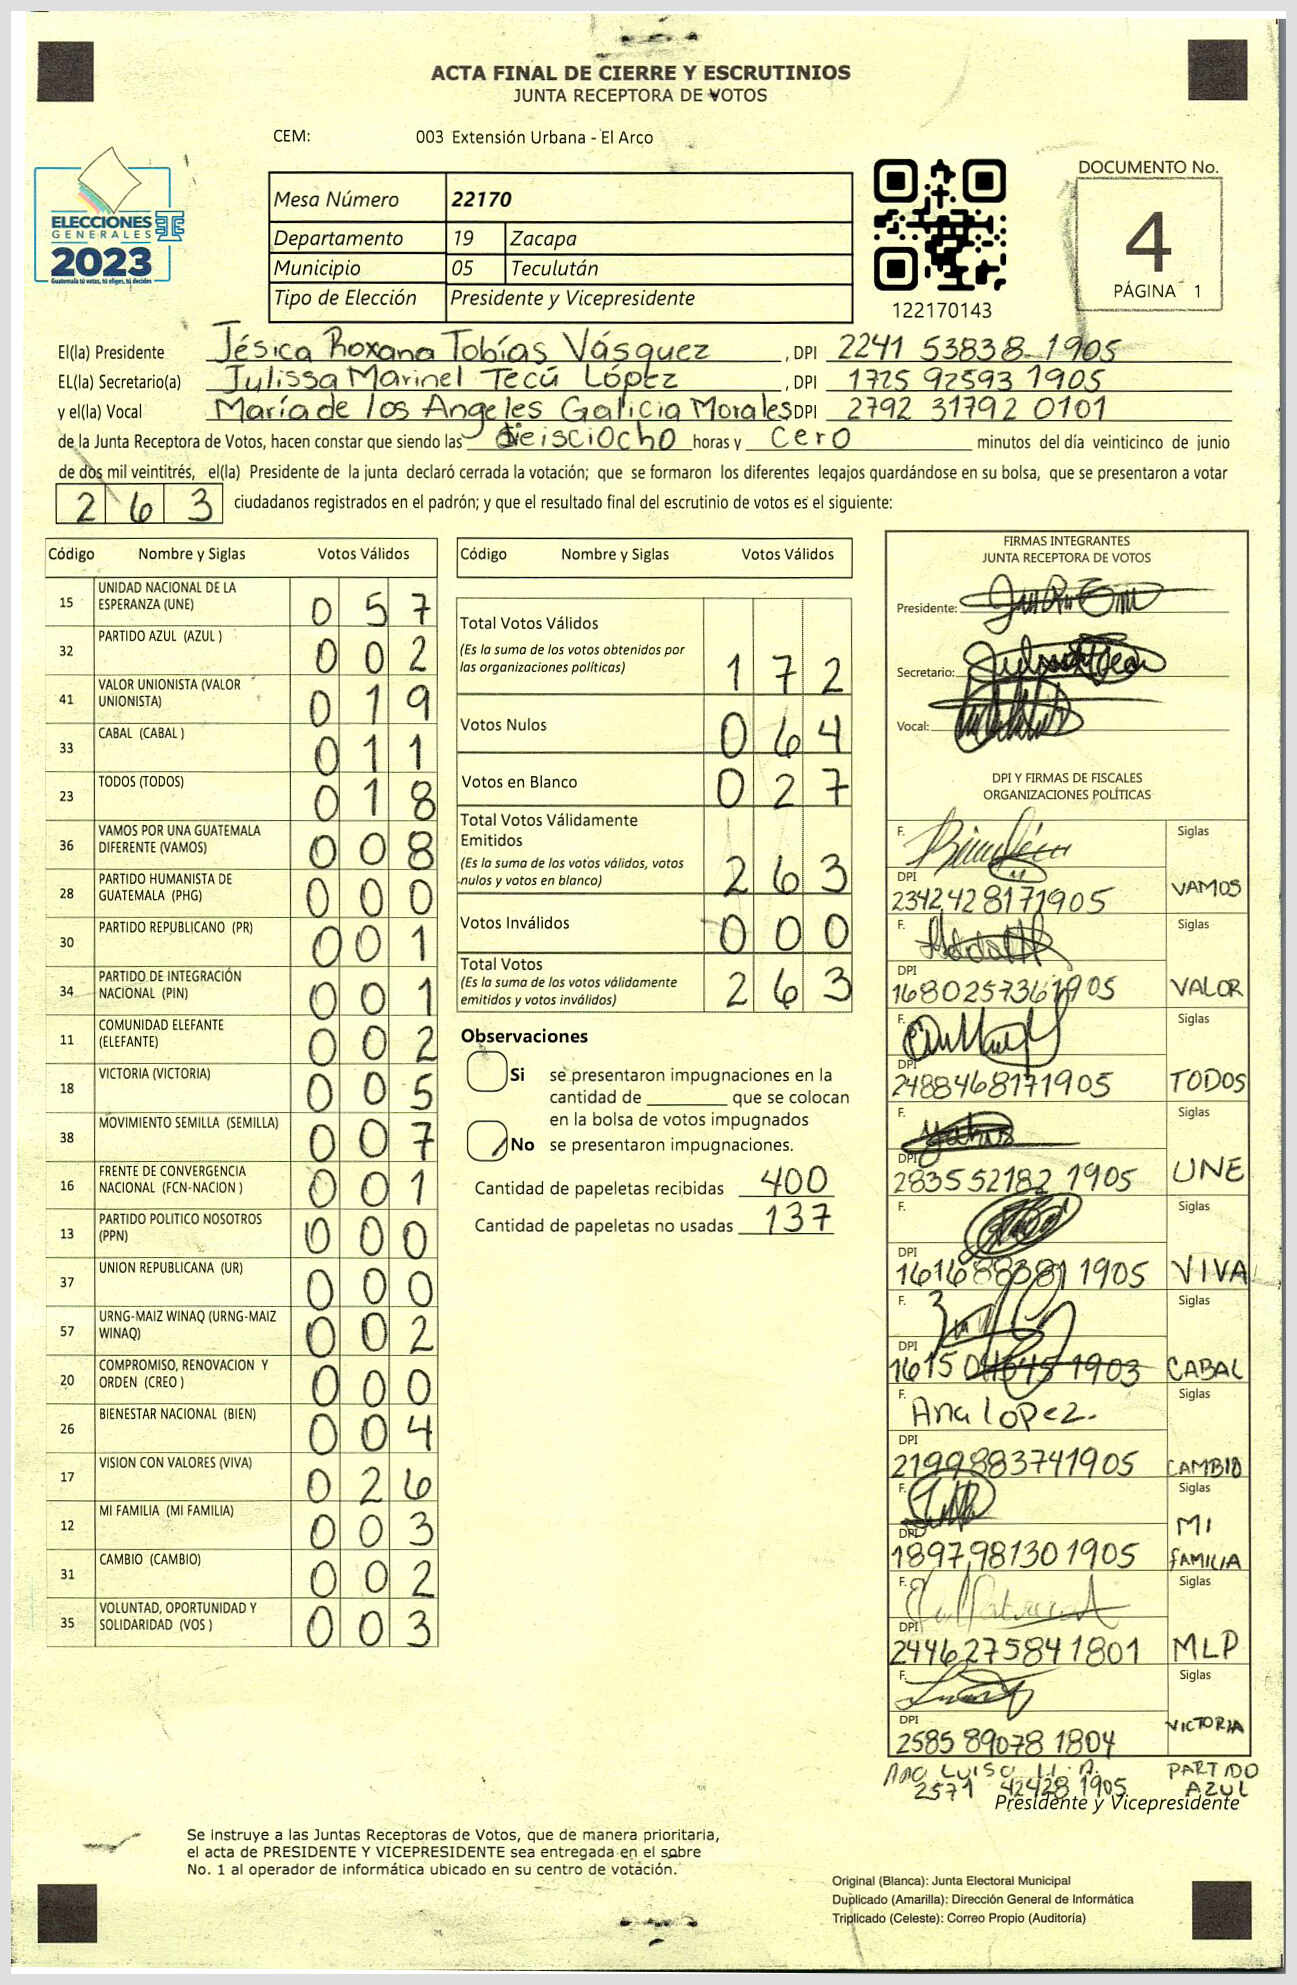 ACTA FINAL DE CIERRE Y ESCRUTINIOS
JUNTA RECEPTORA DE VOTOS
CEM: 003 Extensión Urbana - El Arco
ELECCIONES
GENERALES
2023
Guatemala tú votas, tú eliges, tú decides
Mesa Número 22170
Departamento 19 Zacapa
Municipio 05 Teculután
Tipo de Elección Presidente y Vicepresidente
122170143
DOCUMENTO No.
4
PÁGINA 1
El(la) Presidente Jésica Roxana Tobías Vásquez, DPI 2241 53838 1905
EL(la) Secretario(a) Julissa Marinel Tecú López, DPI 1725 92593 1905
y el(la) Vocal María de los Angeles Galicia Morales DPI 2792 31792 0101
de la Junta Receptora de Votos, hacen constar que siendo las dieisciocho horas y cero minutos del día veinticinco de junio
de dos mil veintitrés, el(la) Presidente de la junta declaró cerrada la votación; que se formaron los diferentes legajos guardándose en su bolsa, que se presentaron a votar
263 ciudadanos registrados en el padrón; y que el resultado final del escrutinio de votos es el siguiente:
Código Nombre y Siglas Votos Válidos
15 UNIDAD NACIONAL DE LA ESPERANZA (UNE) 057
32 PARTIDO AZUL (AZUL ) 002
41 VALOR UNIONISTA (VALOR UNIONISTA) 019
33 CABAL (CABAL ) 011
23 TODOS (TODOS) 018
36 VAMOS POR UNA GUATEMALA DIFERENTE (VAMOS) 008
28 PARTIDO HUMANISTA DE GUATEMALA (PHG) 000
30 PARTIDO REPUBLICANO (PR) 001
34 PARTIDO DE INTEGRACIÓN NACIONAL (PIN) 001
11 COMUNIDAD ELEFANTE (ELEFANTE) 002
18 VICTORIA (VICTORIA) 005
38 MOVIMIENTO SEMILLA (SEMILLA) 007
16 FRENTE DE CONVERGENCIA NACIONAL (FCN-NACION ) 001
13 PARTIDO POLITICO NOSOTROS (PPN) 000
37 UNION REPUBLICANA (UR) 000
57 URNG-MAIZ WINAQ (URNG-MAIZ WINAQ) 002
20 COMPROMISO, RENOVACION Y ORDEN (CREO ) 000
26 BIENESTAR NACIONAL (BIEN) 004
17 VISION CON VALORES (VIVA) 026
12 MI FAMILIA (MI FAMILIA) 003
31 CAMBIO (CAMBIO) 002
35 VOLUNTAD, OPORTUNIDAD Y SOLIDARIDAD (VOS ) 003
Código Nombre y Siglas Votos Válidos
Total Votos Válidos 172
(Es la suma de los votos obtenidos por
las organizaciones políticas)
Votos Nulos 064
Votos en Blanco 027
Total Votos Válidamente
Emitidos 263
(Es la suma de los votos válidos, votos
nulos y votos en blanco)
Votos Inválidos 000
Total Votos 263
(Es la suma de los votos válidamente
emitidos y votos inválidos)
Observaciones
Si se presentaron impugnaciones en la
cantidad de ________ que se colocan
en la bolsa de votos impugnados
No se presentaron impugnaciones.
Cantidad de papeletas recibidas 400
Cantidad de papeletas no usadas 137
FIRMAS INTEGRANTES
JUNTA RECEPTORA DE VOTOS
Presidente:
Secretario:
Vocal:
DPI Y FIRMAS DE FISCALES
ORGANIZACIONES POLÍTICAS
F. Siglas
DPI
2342428171905 VAMOS
F. Siglas
DPI
1680257361905 VALOR
F. Siglas
DPI
2488468171905 TODOS
F. Siglas
DPI
283552182 1905 UNE
F. Siglas
DPI
161688381 1905 VIVA
F. Siglas
DPI
1903 CABAL
F. Ana lopez. Siglas
DPI
2199883741905 CAMBIO
F. Siglas
DPI
1897981301905 MI FAMILIA
F. Siglas
DPI
2446275841801 MLP
F. Siglas
DPI
2585 89078 1804 VICTORIA
Ana Luisa PARTIDO
2571 42428 1905 AZUL
Presidente y Vicepresidente
Se instruye a las Juntas Receptoras de Votos, que de manera prioritaria,
el acta de PRESIDENTE Y VICEPRESIDENTE sea entregada en el sobre
No. 1 al operador de informática ubicado en su centro de votación.
Original (Blanca): Junta Electoral Municipal
Duplicado (Amarilla): Dirección General de Informática
Triplicado (Celeste): Correo Propio (Auditoría)